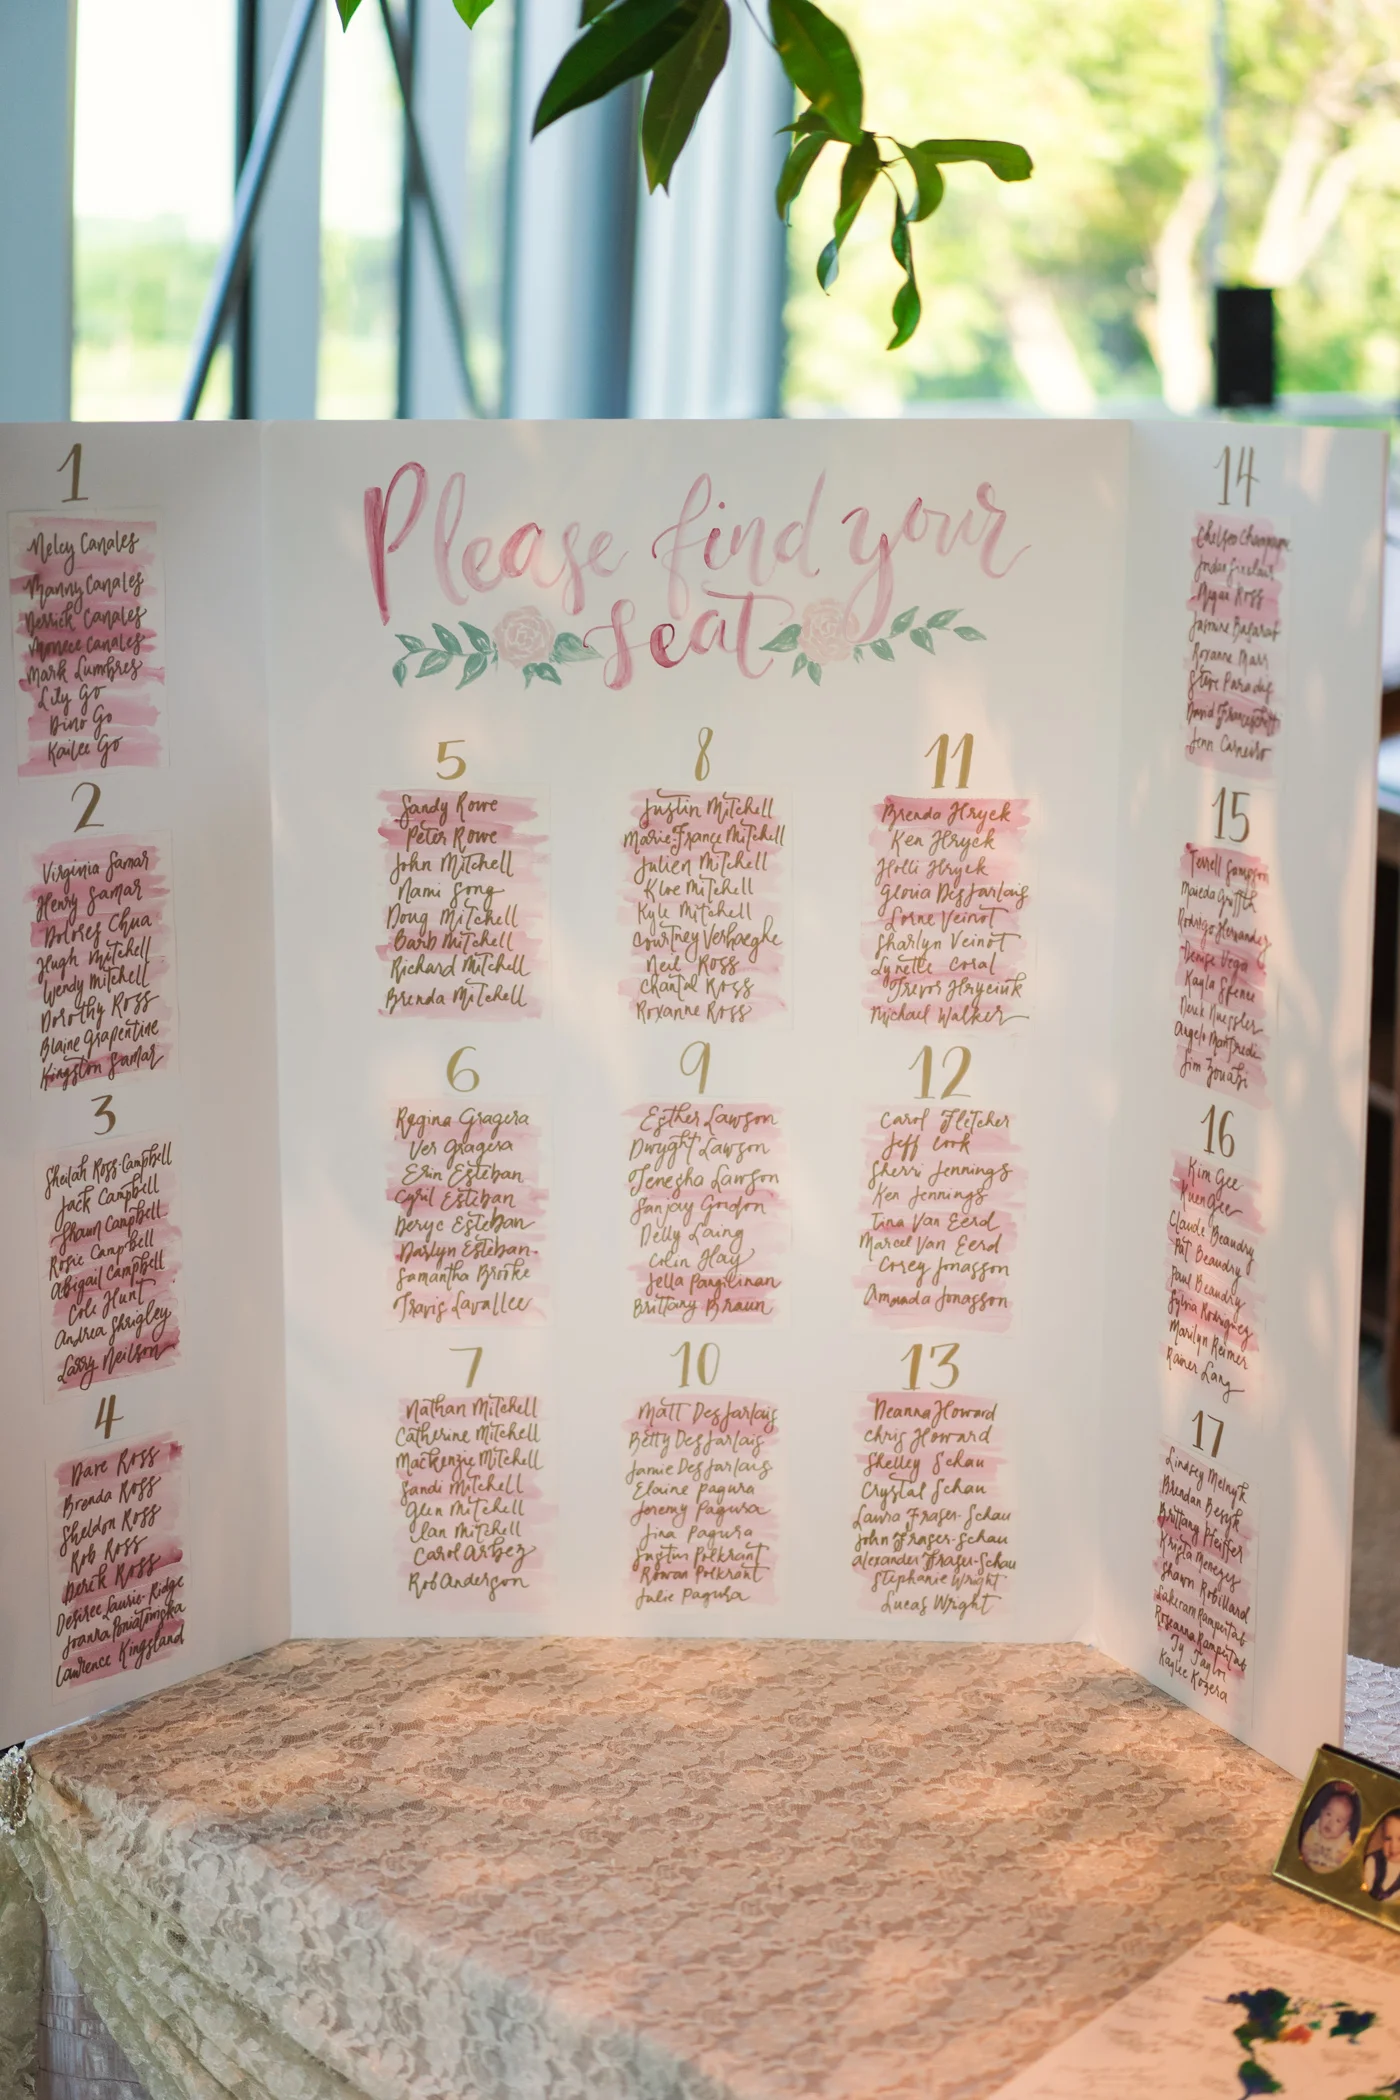 Please find your
seat
1
Melcy Canales
Manny Canales
Derrick Canales
Monece Canales
Mark Lumbres
Lily Go
Dino Go
Kailee Go
2
Virginia Samar
Henry Samar
Dolores Chua
Hugh Mitchell
Wendy Mitchell
Dorothy Ross
Blaine Grapentine
Kingston Samar
3
Sheilah Ross-Campbell
Jack Campbell
Shaun Campbell
Rosie Campbell
Abigail Campbell
Cole Hunt
Andrea Shrigley
Larry Neilson
4
Dave Ross
Brenda Ross
Sheldon Ross
Rob Ross
Derek Ross
Desiree Laurie-Ridge
Joanna Poniatowska
Lawrence Kingsland
5
Sandy Rowe
Peter Rowe
John Mitchell
Nami Song
Doug Mitchell
Barb Mitchell
Richard Mitchell
Brenda Mitchell
6
Regina Gragera
Ver Gragera
Erin Esteban
Cyril Esteban
Deryc Esteban
Darlyn Esteban
Samantha Brooke
Travis Lavallee
7
Nathan Mitchell
Catherine Mitchell
Mackenzie Mitchell
Sandi Mitchell
Glen Mitchell
Ian Mitchell
Carol Arbez
Rob Anderson
8
Justin Mitchell
Marie-France Mitchell
Julien Mitchell
Kloe Mitchell
Kyle Mitchell
Courtney Verhaeghe
Neil Ross
Chantal Ross
Roxanne Ross
9
Esther Lawson
Dwyght Lawson
Tenesha Lawson
Sanjay Gordon
Delly Laing
Colin Hay
Jella Pangilinan
Brittany Braun
10
Matt DesJarlais
Betty DesJarlais
Jamie DesJarlais
Elaine Pagura
Jeremy Pagura
Tina Pagura
Justin Polkrant
Rowan Polkrant
Julie Pagura
11
Brenda Hryck
Ken Hryck
Holli Hryck
Gloria DesJarlais
Lorne Veinot
Sharlyn Veinot
Lynette Coral
Trevor Hryciuk
Michael Walker
12
Carol Fletcher
Jeff Cook
Sherri Jennings
Ken Jennings
Tina Van Eerd
Marcel Van Eerd
Corey Jonasson
Amanda Jonasson
13
Deanna Howard
Chris Howard
Shelley Schau
Crystal Schau
Laura Fraser-Schau
John Fraser-Schau
Alexander Fraser-Schau
Stephanie Wright
Lucas Wright
14
Chelsea Champagne
Jordan Sinclair
Ross
Jasmine Basarab
Roxanne Marr
Steve Paradis
David
Jenn Carneiro
15
Terrell Sampson
Griffith
Rodrigo Hernandez
Denise Vega
Kayla Spence
Derek Nuessler
Angelo Manfredi
Jim Zouatzi
16
Kim Gee
Kuen Gee
Claude Beaudry
Pat Beaudry
Paul Beaudry
Sylvia Rodriguez
Marilyn Reimer
Rainer Lang
17
Lindsey Melnyk
Brendan Besyk
Brittany Pfeiffer
Krista Menezes
Shawn Robillard
Lakeram Rampertab
Roseanna Rampertab
Ty Taylor
Kaylee Kozera